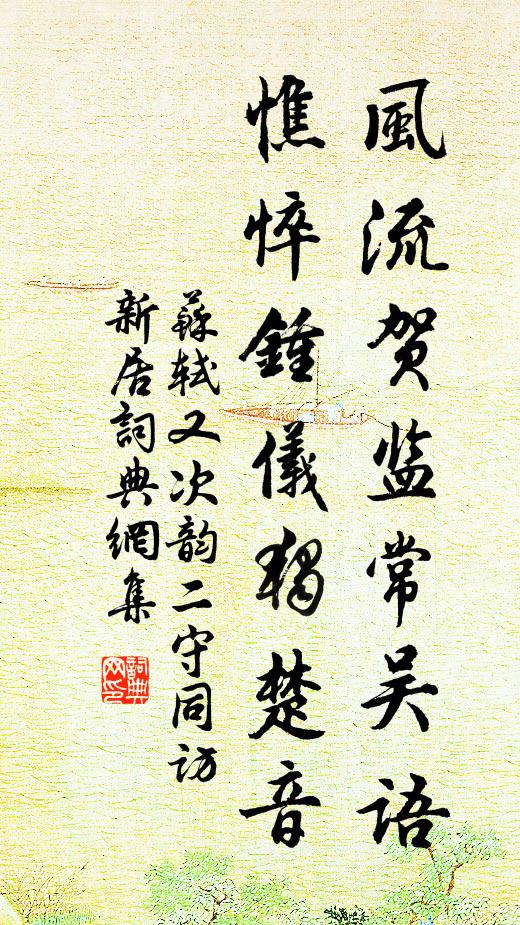 風流贺监常吴语
憔悴鍾儀獨楚音
蘇轼又次韵二守同访
新居詞典網集
詞典网印